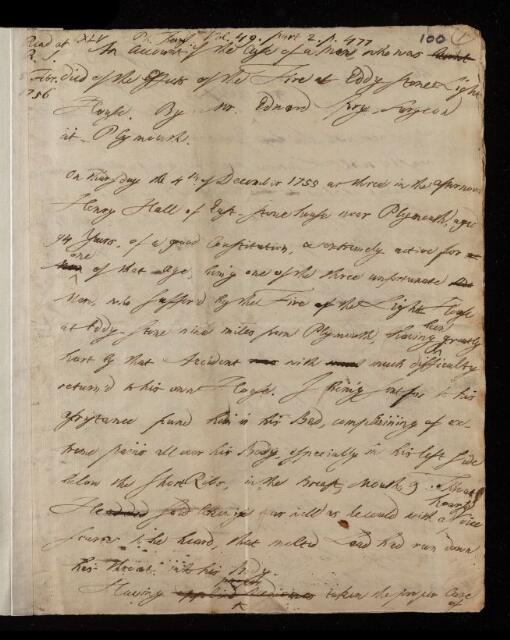 Read at XLV P. Trans. Vol. 49. part 2. p. 477 100
R. S. An account of the Case of a Man who was
Febr. died of the Effects of the Fire at Eddy-stone Light
56
House. By Mr. Edward Spry Surgeon
at Plymouth.
On Thursday the 4th of December 1755 at three in the afternoon
Henry Hall of East-stone house near Plymouth, aged
94 Years, of a good Constitution, & extremely active for
one
of that Age, being one of the three unfortunate
Men, who suffer'd by the Fire of the Light House
at Eddy-stone nine miles from Plymouth, having been greatly
hurt by that Accident with much difficulty
return'd to his own House. I being sent for to his
assistance found him in his Bed, complaining of ex-
treme pains all over his Body, especially in his left Side
below the short Ribs, in the Breast, Mouth & Throat
hoarse
He said likewise as well as he could with a Voice
scarce to be heard, that melted Lead had run down
his Throat into his Body.
Having taken the proper Care
of